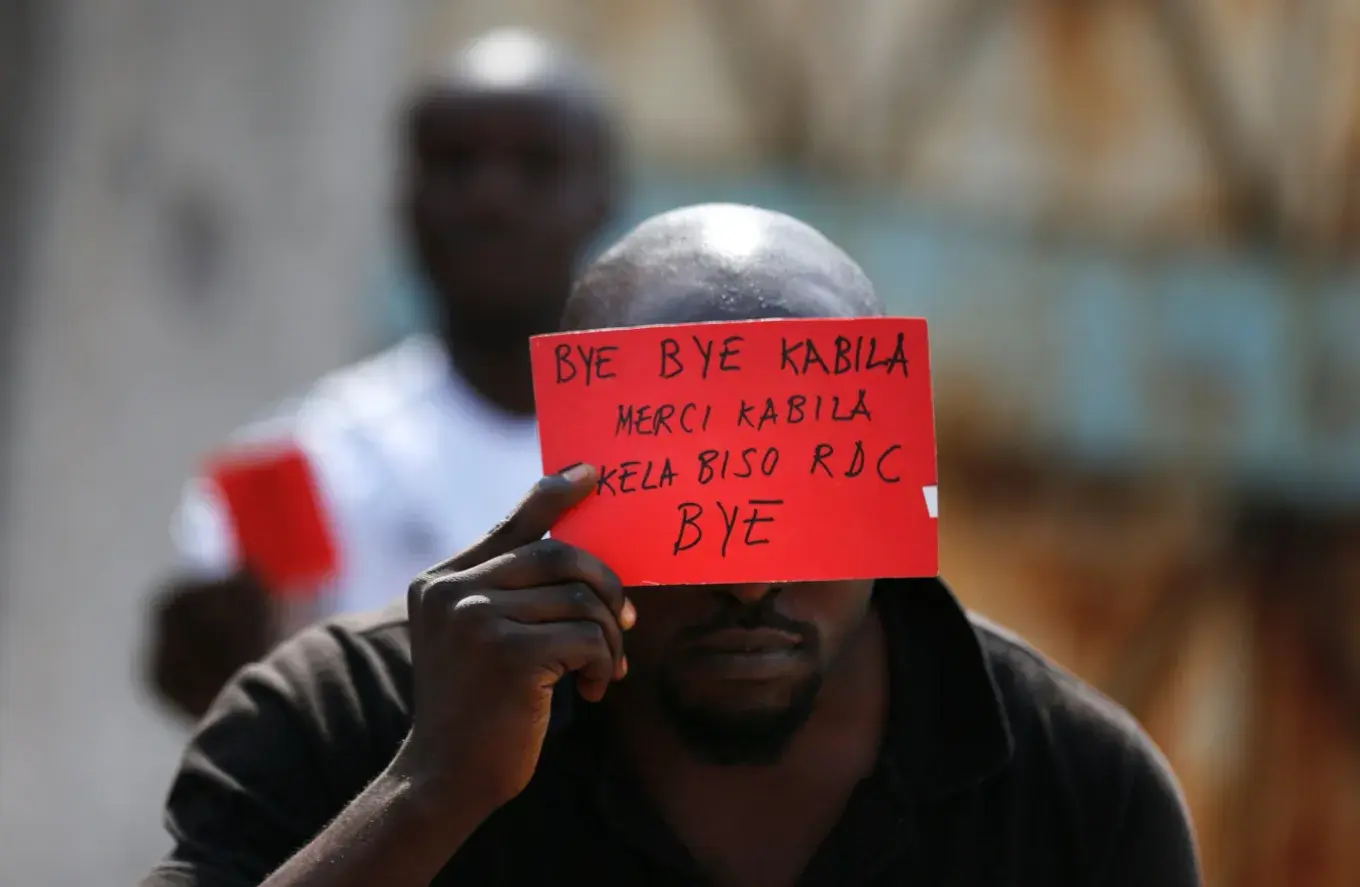 BYE BYE KABILA
MERCI KABILA
KELA BISO RDC
BYE